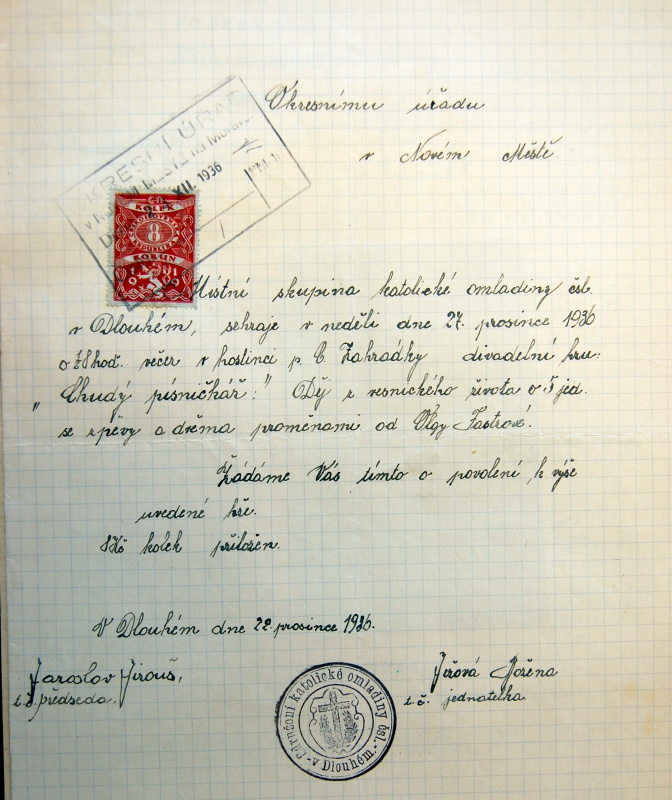 Okresnímu úřadu
v Novém Městě.
OKRESNÍ ÚŘAD
XII. 1936
KOLEK
8
KORUN
1919
Místní skupina katolické omladiny čsl.
v Dlouhém, sehraje v neděli dne 27. prosince 1936
o ½8 hod. večer v hostinci p. C. Zahrádky divadelní hru:
„Chudý písničkář:" Děj z vesnického života o 5 jed.
se zpěvy a dvěma proměnami od Olgy Fastrové.
Žádáme Vás tímto o povolení k výše
uvedené hře.
8 Kč kolek přiložen.
V Dlouhém dne 22. prosince 1936.
Jaroslav Jirouš,
t. č. předseda.
Sdružení katolické omladiny čsl.
- v Dlouhém. -
Božena
t. č. jednatelka